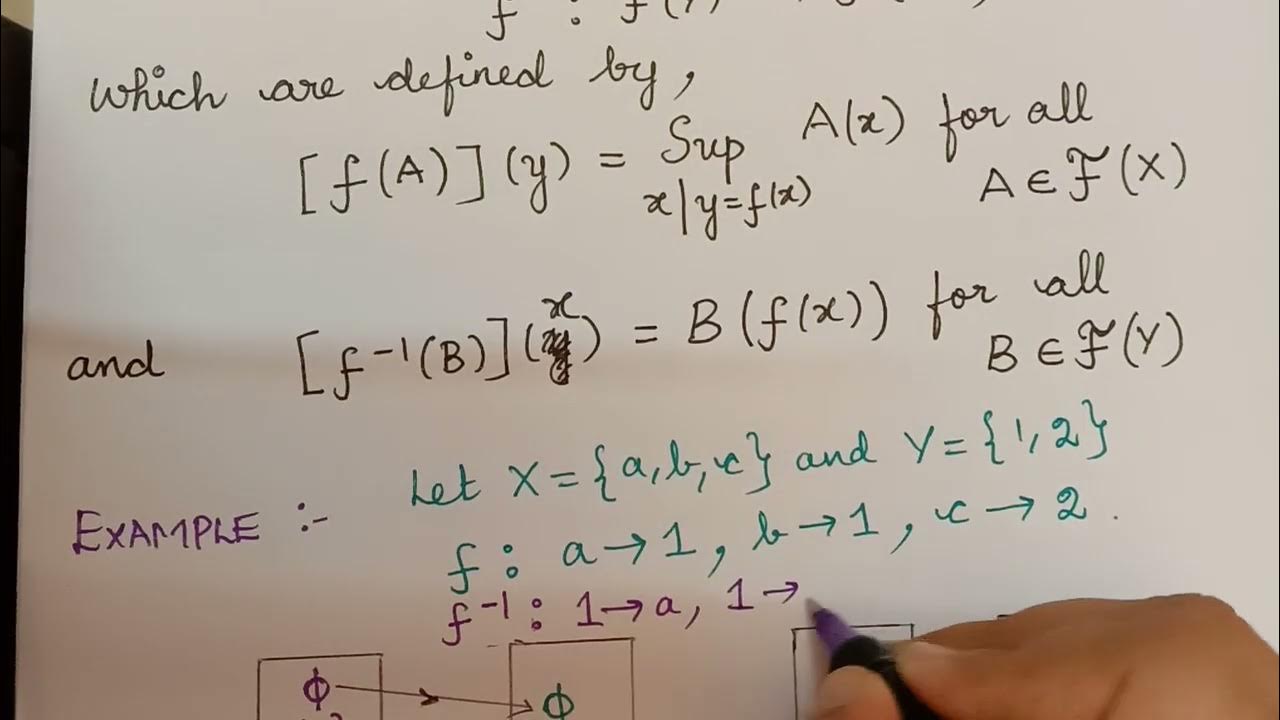 f : f(Y)
which are defined by,
[f(A)](y) = Sup A(x) for all
x|y=f(x) A ∈ ℱ(X)
and [f⁻¹(B)](x) = B(f(x)) for all
B ∈ ℱ(Y)
EXAMPLE :- Let X = {a, b, c} and Y = {1, 2}
f : a → 1, b → 1, c → 2.
f⁻¹ : 1 → a, 1 →
ϕ → ϕ